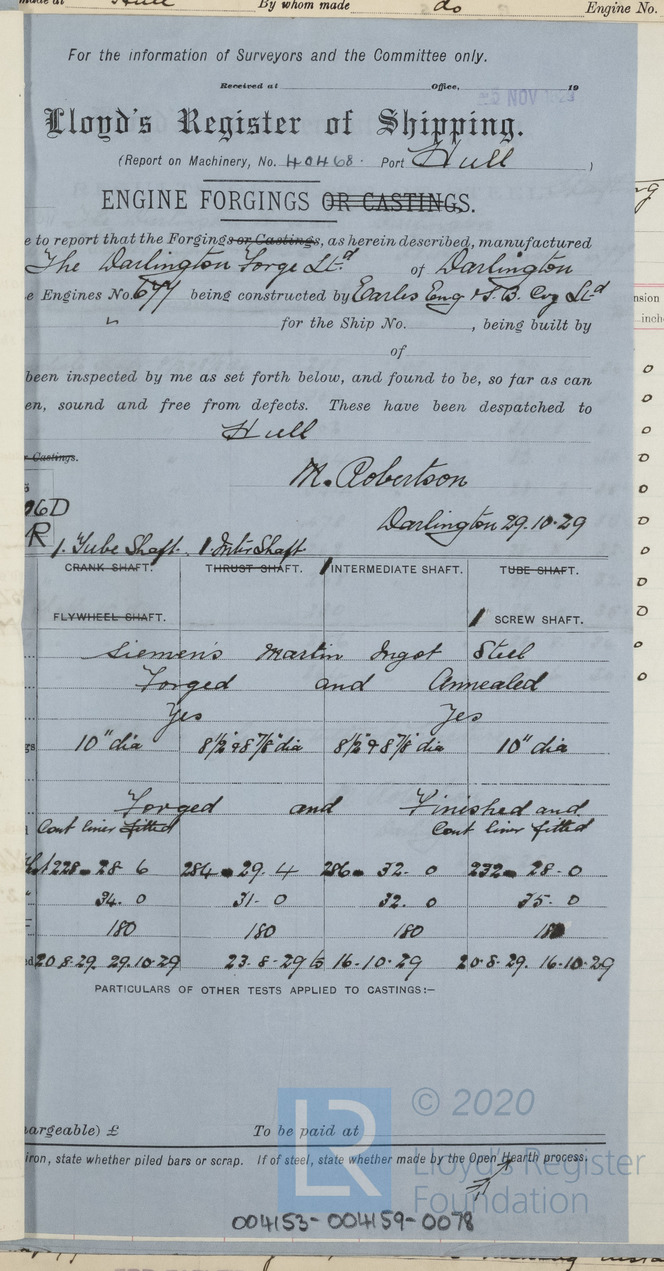 made at Hull By whom made do Engine No.
For the information of Surveyors and the Committee only.
Received at Office, 19
NOV
Lloyd's Register of Shipping.
(Report on Machinery, No. 40468. Port Hull )
ENGINE FORGINGS OR CASTINGS.
e to report that the Forgings or Castings, as herein described, manufactured
The Darlington Forge Ltd of Darlington
e Engines No. 677 being constructed by Earles Eng & S. B. Coy Ltd
" for the Ship No. , being built by
of
been inspected by me as set forth below, and found to be, so far as can
en, sound and free from defects. These have been despatched to
Hull
Castings.
M. Robertson
06D
Darlington 29.10.29
R 1. Tube Shaft. 1 Inter Shaft
CRANK SHAFT. THRUST SHAFT. 1 INTERMEDIATE SHAFT. TUBE SHAFT.
FLYWHEEL SHAFT. 1 SCREW SHAFT.
Siemens Martin Ingot Steel
Forged and Annealed
Yes Yes
10" dia 8 1/2" & 8 7/8" dia 8 1/2" & 8 7/8" dia 10" dia
Forged and Finished and
Cont liner fitted Cont liner fitted
228 - 28 6 284 - 29. 4 286 - 32. 0 232 - 28 - 0
34. 0 31 - 0 32. 0 35. 0
180 180 180 180
20.8.29. 29.10.29 23.8.29 to 16-10-29 20.8.29. 16.10.29
PARTICULARS OF OTHER TESTS APPLIED TO CASTINGS:—
argeable) £ To be paid at
iron, state whether piled bars or scrap. If of steel, state whether made by the Open Hearth process.
LR
© 2020
Lloyd's Register
Foundation
004153-004159-0078